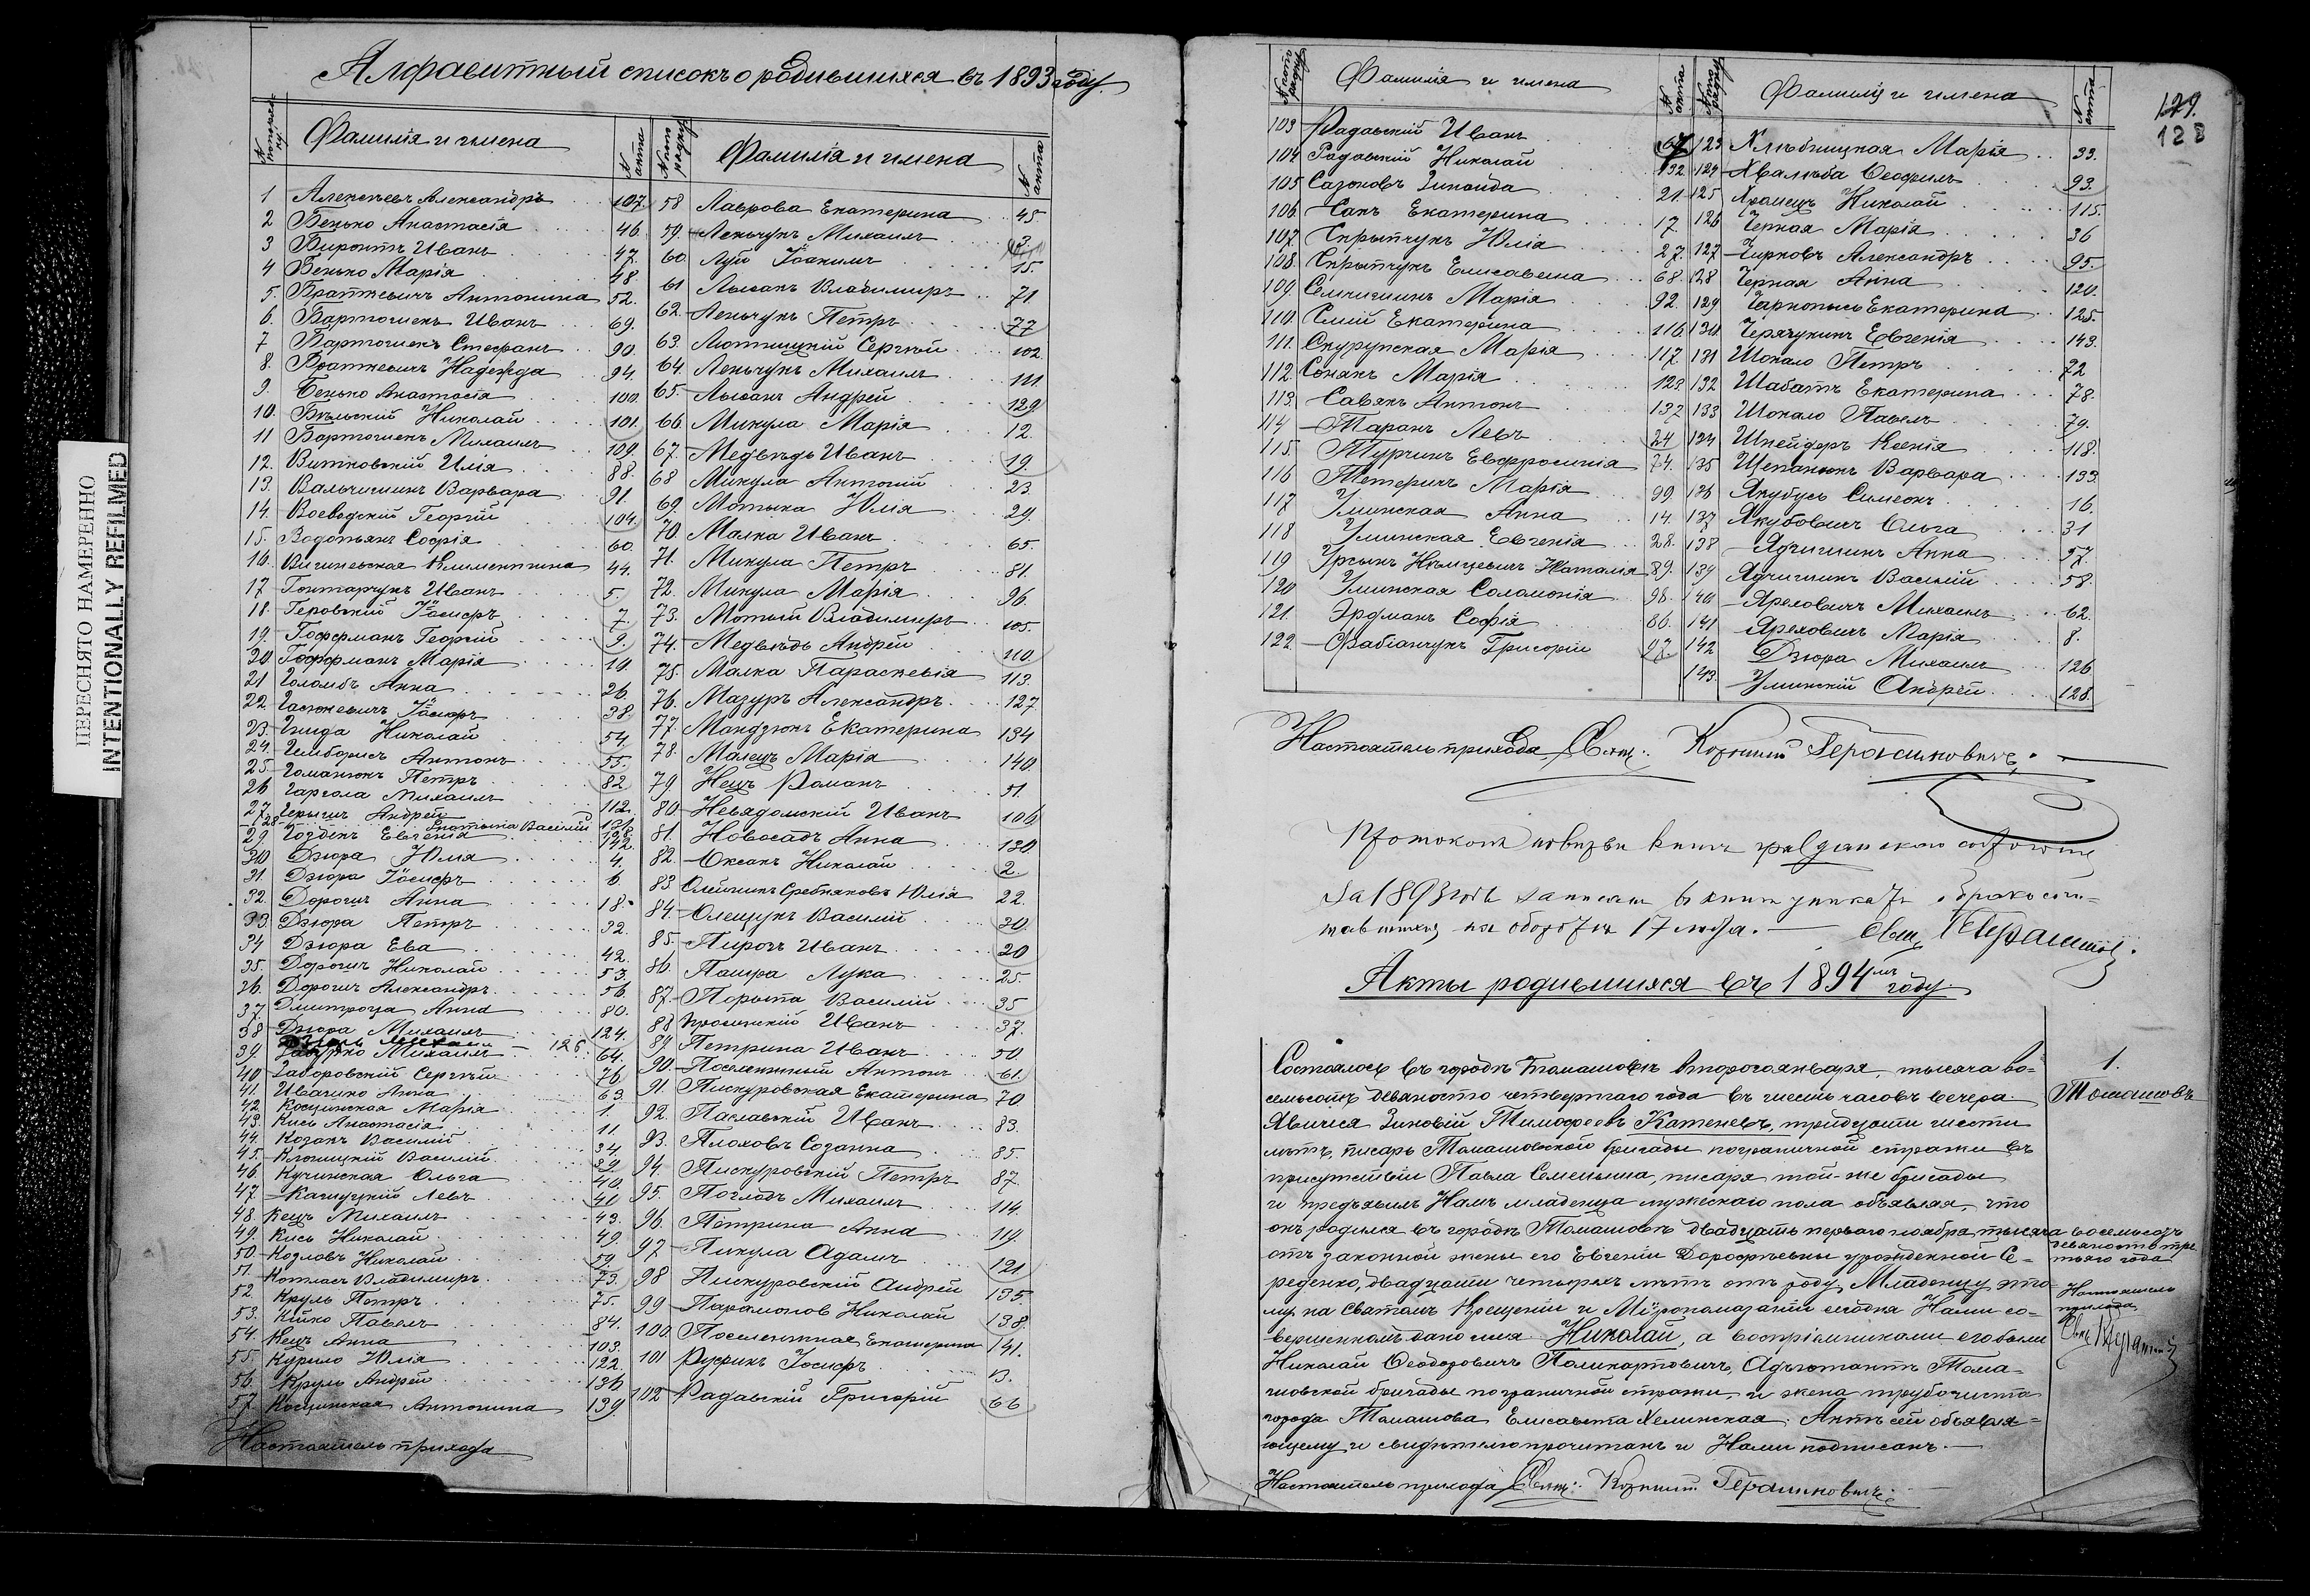 Алфавитный списокъ о родившихся въ 1893 году.
ПЕРЕСНЯТО НАМЕРЕННО
INTENTIONALLY REFILMED
Фамилія и имена № акта
1 Алексѣевъ Александръ 107.
2 Бенько Анастасія 46.
3 Биронтъ Иванъ 47.
4 Бенько Марія 48.
5. Браткевичъ Антонина 52.
6. Бартошекъ Иванъ 69.
7 Бартошекъ Стефанъ 90.
8. Браткевичъ Надежда 94.
9. Бенько Анастасія 100.
10. Бѣльскій Николай 101.
11 Бартошекъ Михаилъ 109.
12. Витковскій Илія 88.
13. Вальчишинъ Варвара 91.
14. Воеводскій Георгій 104.
15. Водотьянъ Софія 60.
16. Вишневская Климентина 44.
17 Гонтарчукъ Иванъ 5.
18. Геровскій Іосифъ 7.
19. Гоферманъ Георгій 9.
20 Гоферманъ Марія 10.
21 Голомбъ Анна 26.
22. Гасюкевичъ Іосифъ 38.
23. Гнида Николай 54.
24. Гемборисъ Антонъ 55.
25. Романюкъ Петръ 82
26 Гаргола Михаилъ 112.
27. Герычъ Андрей 131.
28. Василій
29. Гозденъ Евгенія 142.
30 Дзюра Юлія 4.
31. Дзюра Іосифъ 6.
32. Дорошъ Анна 18.
33. Дзюра Петръ 32.
34 Дзюра Ева 42.
35. Дорошъ Николай 53.
36. Дорошъ Александръ 56.
37. Дмитроца Анна 80.
38 Дзюра Михаилъ 124.
126.
39. Михаилъ 64.
40 Заборовскій Сергѣй 76
41. Иващко Анна 63.
42. Косцинская Марія 1.
43. Кись Анастасія 11.
44. Козакъ Василій 34.
45. Клопицкій Василій 39.
46. Кучинская Ольга 40.
47. Качуцкій Левъ 41
48. Кецъ Михаилъ 43.
49. Кись Николай 49.
50. Козловъ Николай 59.
51. Котласъ Владимиръ 73.
52. Круль Петръ 75.
53. Кійко Павелъ 84.
54. Кецъ Анна 103.
55. Курило Юлія 122.
56. Круль Андрей 136
57. Косцинская Антонина 139.
Настоятель прихода
Фамилія и имена № акта
58 Лаврова Екатерина 45.
59. Леньчукъ Михаилъ 3.
60 Луй Іоакимъ 15.
61 Лысакъ Владимиръ 71.
62. Леньчукъ Петръ 77
63. Лютницкій Сергѣй 102.
64. Леньчукъ Михаилъ 111.
65. Лысакъ Андрей 129
66. Микула Марія 12.
67. Медвѣдь Иванъ 19.
68 Микула Антоній 23.
69. Мотыка Юлія 29.
70. Малка Иванъ 65.
71. Микула Петръ 81.
72. Микула Марія 96.
73. Мотыи Владимиръ 105.
74. Медвѣдь Андрей 110
75. Малка Параскевія 113.
76. Мазуръ Александръ 127.
77. Мандзюкъ Екатерина 134
78. Малецъ Марія 140.
79. Нецъ Романъ 51.
80. Невядомскій Иванъ 106
81. Новосадъ Анна 130
82. Оксакъ Николай 2
83 Олейникъ Сребняковъ Юлія 22.
84. Олещукъ Василій 30
85. Пирогъ Иванъ 20
86. Пашра Лука 25.
87. Порыта Василій 35
88 Иванъ 37.
89. Петрина Иванъ 50.
90. Антонъ 61.
91 Пискуровская Екатерина 70.
92. Паславскій Иванъ 83.
93. Плоховъ Созанна 85.
94. Пискуровскій Петръ 87.
95. Поглодъ Михаилъ 114.
96. Петрина Анна 119.
97 Пикула Адамъ 121
98 Пискуровскій Андрей 135.
99 Парамонов Николай 138.
100 Екатерина 141.
101 Русинъ Іосифъ 13.
102 Радавскій Григорій 66
Фамилія и имена № акта
103 Радавскій Иванъ 67
104 Радавскій Николай 132
105 Сазоновъ Зинаида 21.
106. Сакъ Екатерина 17.
107. Скрыпчукъ Юлія 27.
108. Скрыпчукъ Елисавета 68.
109. Семчишинъ Марія 92.
110. Смій Екатерина 116
111. Скурупская Марія 117.
112. Сонякъ Марія 123.
113. Савякъ Антонъ 137
114 Таранъ Левъ 24
115. Турчинъ Евфросинія 74.
116 Тетеричъ Марія 99.
117 Улинская Анна 14.
118 Улинская Евгенія 28.
119 Урсынъ Нѣмцевичъ Наталія 89.
120 Улинская Соломонія 98.
121. Эрдманъ Софія 86.
122 Фабіанчукъ Григорій 97.
Фамилія и имена № акта
123 Хлѣбницкая Марія 33.
124 Хвалиба Феофилъ 93.
125 Храмецъ Николай 115.
126 Черная Марія 36
127 Чирковъ Александръ 95.
128 Черная Анна 120.
129 Чарнопысь Екатерина 125.
130 Черячукинъ Евгенія 143.
131 Шокало Петръ 72
132 Шабатъ Екатерина 78.
133 Шокало Павелъ 79.
134 Шнейдеръ Ксенія 118.
135 Щепанюкъ Варвара 133.
136 Якубусъ Симеонъ 16.
137 Якубовичъ Ольга 31
138 Ядчишинъ Анна 57.
139 Ядчишинъ Василій 58.
140 Яреховичъ Михаилъ 62.
141 Яреховичъ Марія 8.
142 Дзюра Михаилъ 126
143. Улинскій Андрей 128.
179.
128
Настоятель прихода Свящ: Корнилій Герасимовичъ.
Протоколъ книгъ гражданскаго состоянія
за 1893 годъ записанъ въ книгѣ о бракосоче-
тавшихся на оборотѣ 17 листа. Свящ.
Акты родившихся въ 1894мъ году.
1.
Томашовъ
Состоялось въ городѣ Томашовѣ второго января, тысяча во-
семьсотъ девяносто четвертаго года въ шесть часовъ вечера.
Явился Зиновій Тимофеевъ Катеневъ, тридцати шести
лѣтъ, писарь Томашовской бригады пограничной стражи въ
присутствіи Павла Семенина, писаря той-же бригады
и предъявилъ Намъ младенца мужескаго пола объявляя, что
онъ родился въ городѣ Томашовѣ двадцать перваго ноября тысяча восемьсотъ
девяносто тре-
тьяго года
отъ законной жены его Евгеніи Дорофѣевны урожденной Се-
реденко, двадцати четырехъ лѣтъ отъ роду. Младенцу это-
му на Святомъ Крещеніи и Мѵропомазаніи сегодня Нами со-
вершенномъ дано имя Николай, а воспріемниками его были
Николай Феодоровичъ Поликарповичъ, Адъютантъ Тома-
шовской бригады пограничной стражи, и жена трубочиста
города Томашова Елисавета Хелинская. Актъ сей объявля-
ющему и свидѣтелю прочитанъ и Нами подписанъ.
Настоятель
прихода
Свящ.
Настоятель прихода Свящ: Корнилій Герасимовичъ